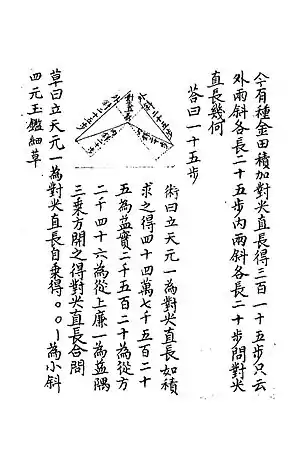 今有種金田積加對尖直長得三百一十五步只云
外兩斜各長二十五步內兩斜各長二十步問對尖
直長幾何
荅曰一十五步
術曰立天元一為對尖直長如積
求之得四十四萬七千五百二十
五為益實二千五百二十為從方
二千四十六為從上廉一為益隅
三乗方開之得對尖直長合問
草曰立天元一為對尖直長自乗得。。一為小斜
四元玉鑑細草